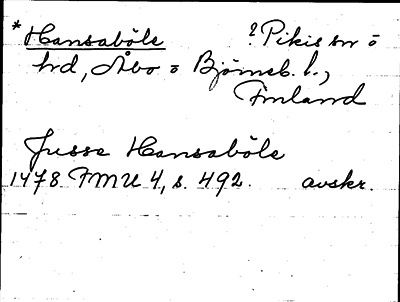 *Hansaböle ? Pikis sn o
hd, Åbo o Björneb. l.,
Finland
Jusse Hansaböle
1478 FMU 4, s. 492. avskr.